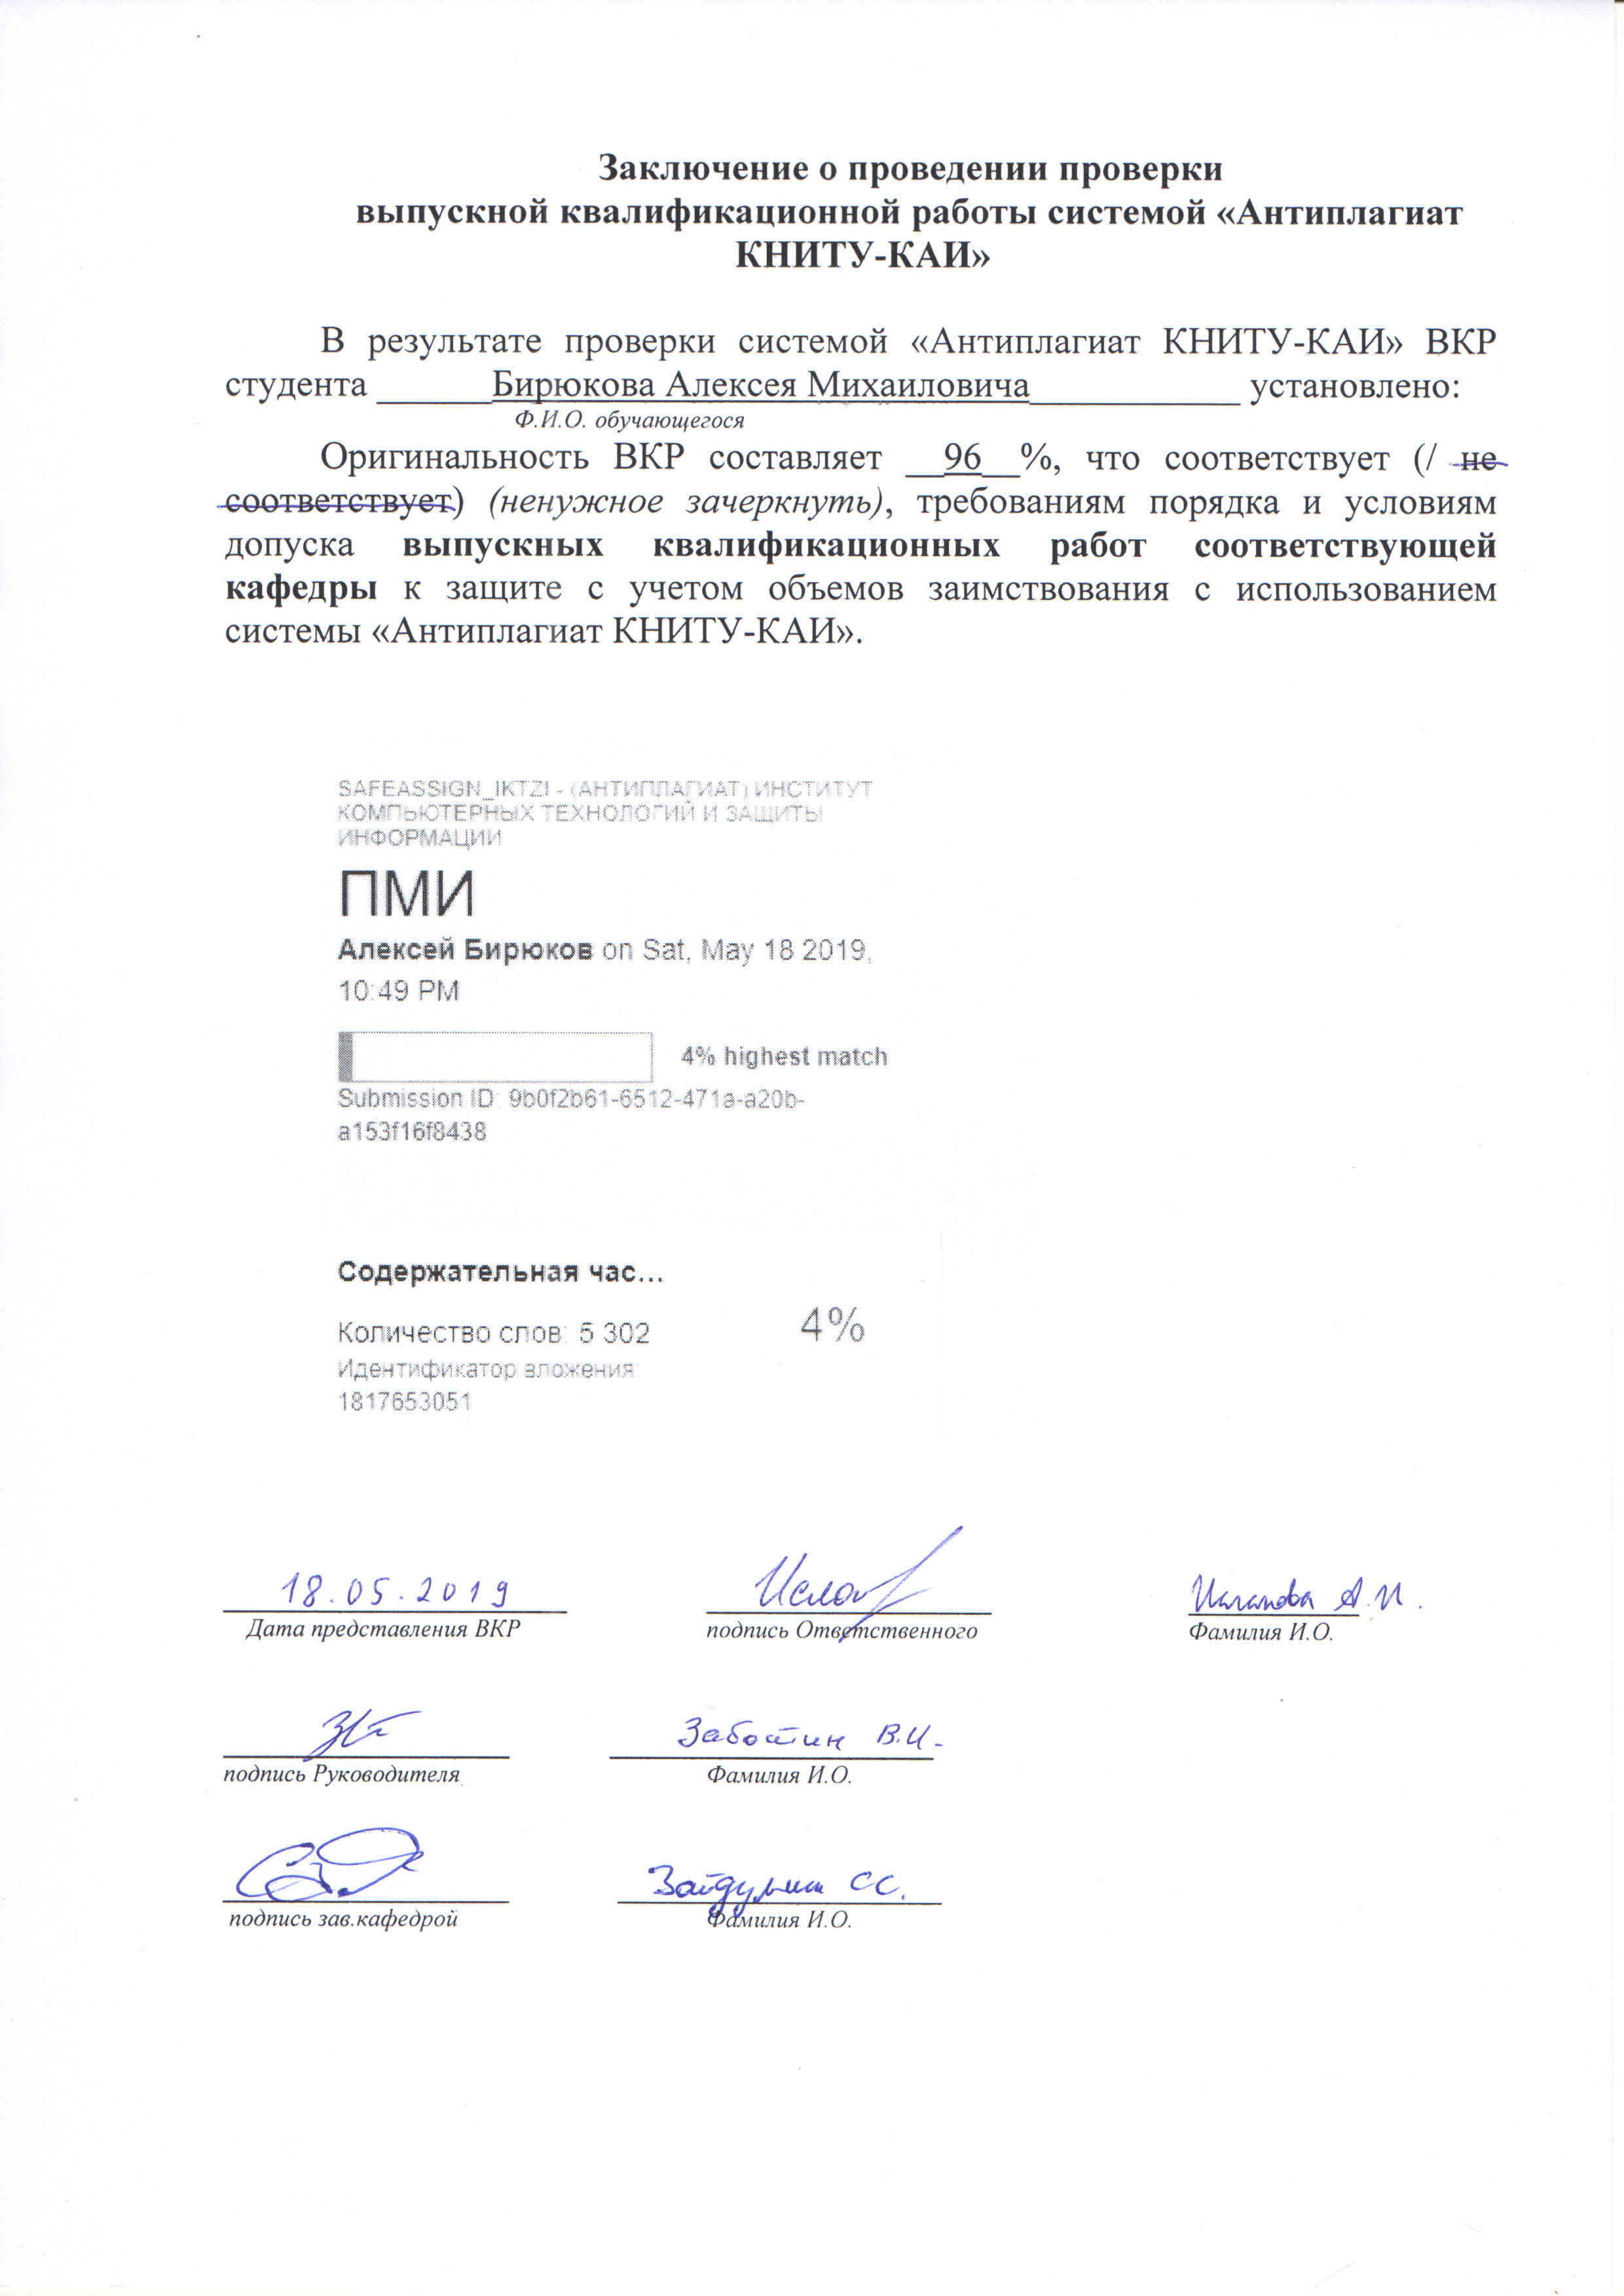 Заключение о проведении проверки
выпускной квалификационной работы системой «Антиплагиат
КНИТУ-КАИ»
В результате проверки системой «Антиплагиат КНИТУ-КАИ» ВКР
студента ______Бирюкова Алексея Михаиловича___________ установлено:
Ф.И.О. обучающегося
Оригинальность ВКР составляет __96__%, что соответствует (/ не
соответствует) (ненужное зачеркнуть), требованиям порядка и условиям
допуска выпускных квалификационных работ соответствующей
кафедры к защите с учетом объемов заимствования с использованием
системы «Антиплагиат КНИТУ-КАИ».
SAFEASSIGN_IKTZI - (АНТИПЛАГИАТ) ИНСТИТУТ
КОМПЬЮТЕРНЫХ ТЕХНОЛОГИЙ И ЗАЩИТЫ
ИНФОРМАЦИИ
ПМИ
Алексей Бирюков on Sat, May 18 2019,
10:49 PM
4% highest match
Submission ID: 9b0f2b61-6512-471a-a20b-
a153f16f8438
Содержательная час...
Количество слов: 5 302 4%
Идентификатор вложения:
1817653051
18.05.2019 А.И.
Дата представления ВКР подпись Ответственного Фамилия И.О.
Заботин В.И.
подпись Руководителя Фамилия И.О.
Зайдуллин С.С.
подпись зав.кафедрой Фамилия И.О.